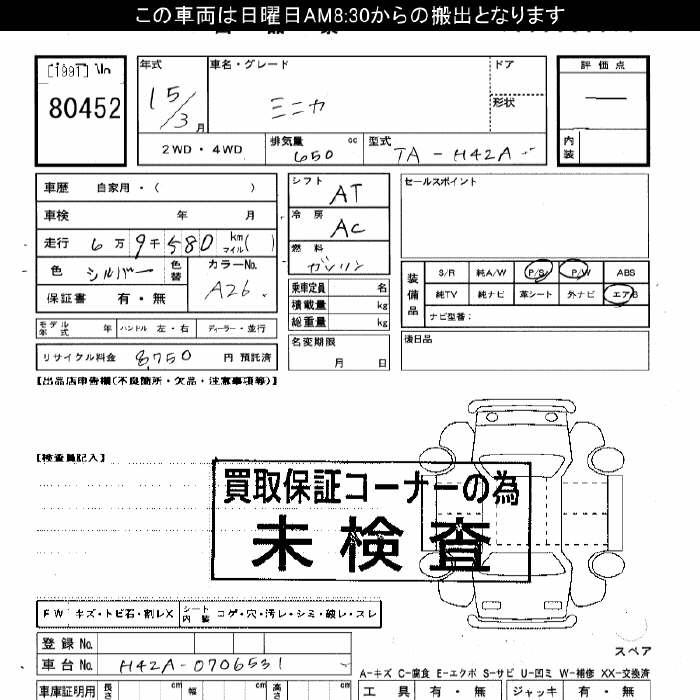 この車両は日曜日AM8:30からの搬出となります
[1991] \ln
80452
年式
15/3月
車名・グレード
ミニカ
ドア
形状
評価点
内装
2WD・4WD
排気量 650 cc
型式 TA-H42A
車歴 自家用・( )
車検 年 月
走行 6万9千580 km マイル( )
色 シルバー 色替
カラーNo. A26
保証書 有・無
モデル年式 年 ハンドル 左・右 ディーラー・並行
リサイクル料金 8,750 円 預託済
シフト AT
冷房 AC
燃料 ガソリン
乗車定員 名
積載量 kg
総重量 kg
名変期限
月 日
セールスポイント
装備品
S/R 純A/W P/S P/W ABS
純TV 純ナビ 革シート 外ナビ エアB
ナビ型番:
後日品
【出品店申告欄(不良箇所・欠品・注意事項等)】
【検査員記入】
買取保証コーナーの為
未検査
FW キズ・トビ石・割レX シート内装 コゲ・穴・汚レ・シミ・破レ・スレ
登録No.
車台No. H42A-0706531
スペア
A-キズ C-腐食 E-エクボ S-サビ U-凹ミ W-補修 XX-交換済
車庫証明用 長さ cm 幅 cm 高さ cm
工具 有・無 ジャッキ 有・無